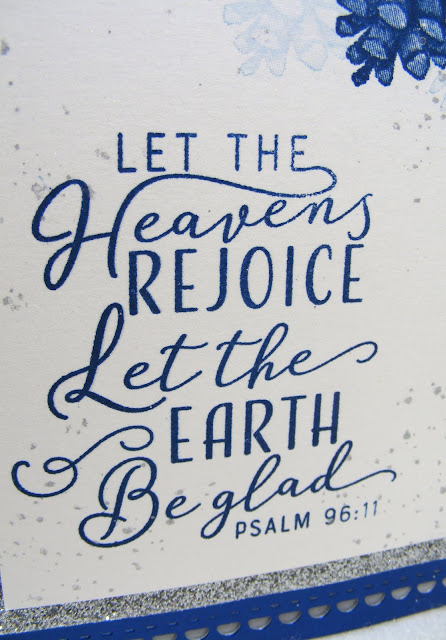 LET THE
Heavens
REJOICE
Let the
EARTH
Be glad
PSALM 96:11